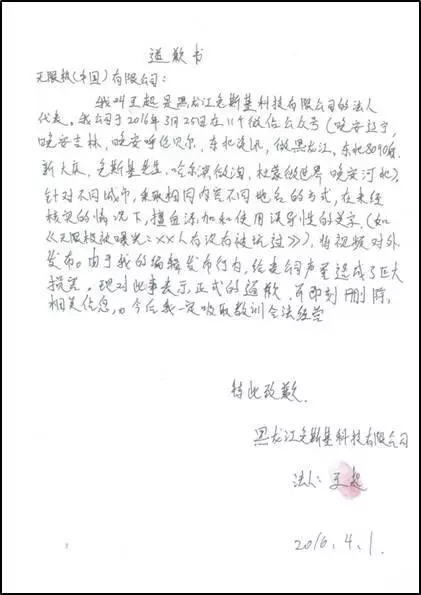 道歉书
无限极(中国)有限公司:
我叫王超是黑龙江克斯基科技有限公司的法人
代表。我公司于2016年3月25日在11个微信公众号(晚安辽宁,
晚安吉林,晚安呼伦贝尔,东北资讯,微黑龙江,东北8090后,
新大庆,克斯基先生,哈尔滨微淘,杜蒙微世界 晚安河北)。
针对不同城市,采取相同内容不同地名的方式,在未经
核实的情况下,擅自添加和使用误导性的文字,(如
《无限极被曝光:××人有没有被坑过》),将视频对外
发布。由于我的编辑发布行为,给贵公司声誉造成了巨大
损害。现对此事表示正式的道歉,并即刻删除,
相关信息,。今后我一定吸取教训合法经营
特此致歉.
黑龙江克斯基科技有限公司
法人:王超
2016.4.1.